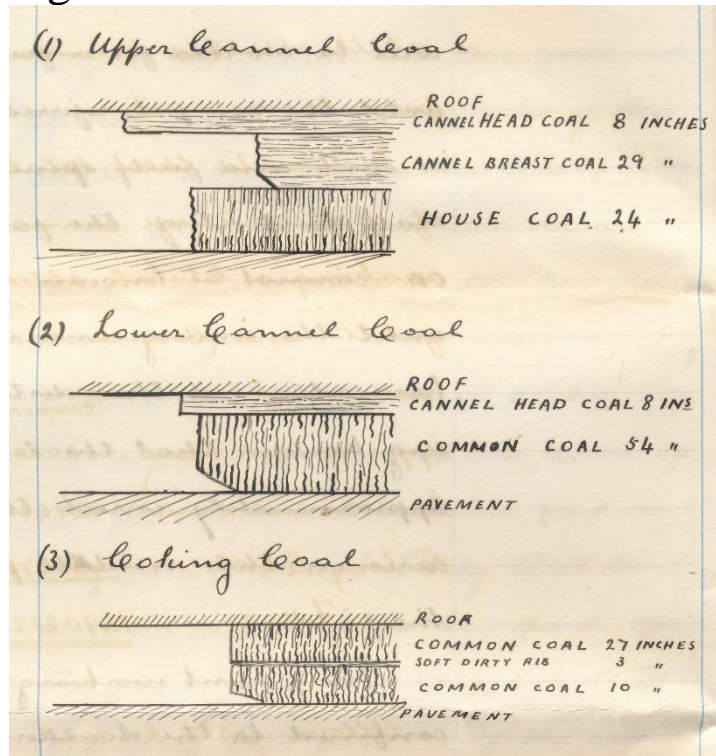 (1) Upper Cannel Coal
ROOF
CANNEL HEAD COAL 8 INCHES
CANNEL BREAST COAL 29 "
HOUSE COAL 24 "
(2) Lower Cannel Coal
ROOF
CANNEL HEAD COAL 8 INS
COMMON COAL 54 "
PAVEMENT
(3) Coking Coal
ROOF
COMMON COAL 27 INCHES
SOFT DIRTY RIB 3 "
COMMON COAL 10 "
PAVEMENT